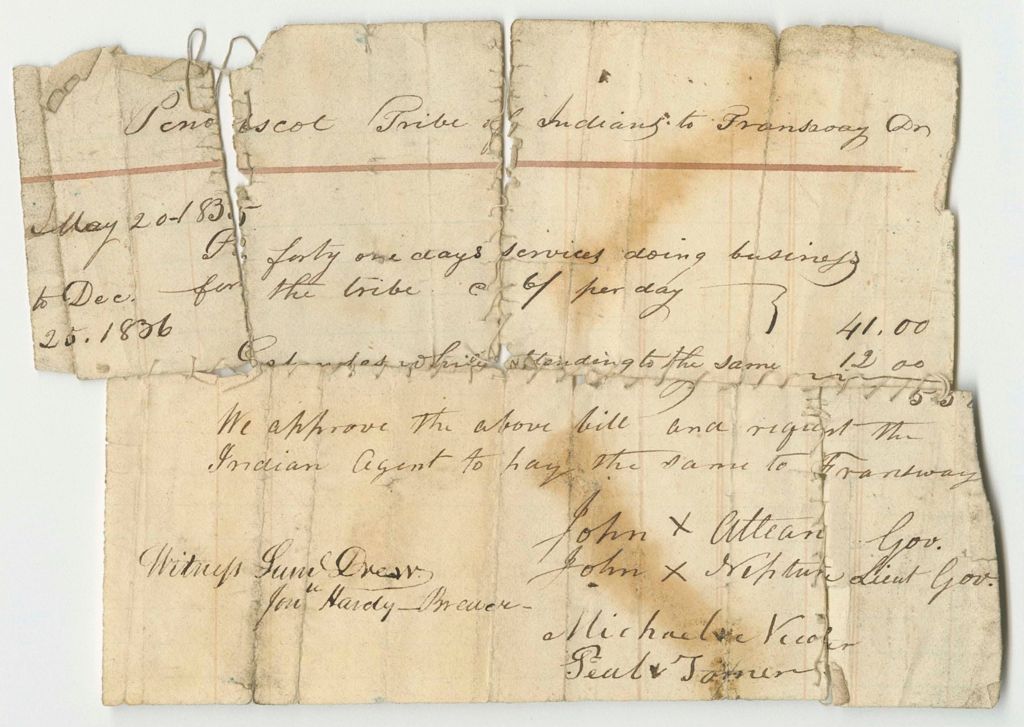 Penobscot Tribe of Indians to Fransway Dr
May 20-1835
Fr forty one days services doing business
to Dec. for the tribe c 6/ per day } 41.00
25. 1836
while attending to the same 12 00
53
We approve the above bill and request the
Indian Agent to pay the same to Fransway
John X Attean Gov.
Witness Saml Drew John X Neptune Lieut Gov.
Jonn Hardy - Brewer -
Michael x
Peal x Tomer